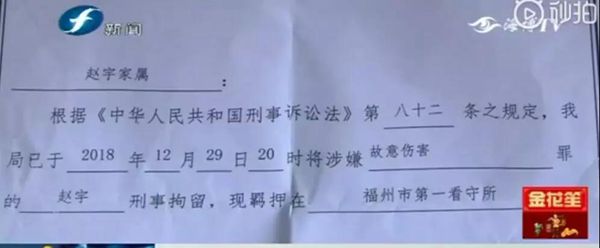 新闻
秒拍
赵宇家属：
根据《中华人民共和国刑事诉讼法》第 八十二 条之规定，我
局已于 2018 年 12 月 29 日 20 时将涉嫌 故意伤害 罪
的 赵宇 刑事拘留，现羁押在 福州市第一看守所
金花笙